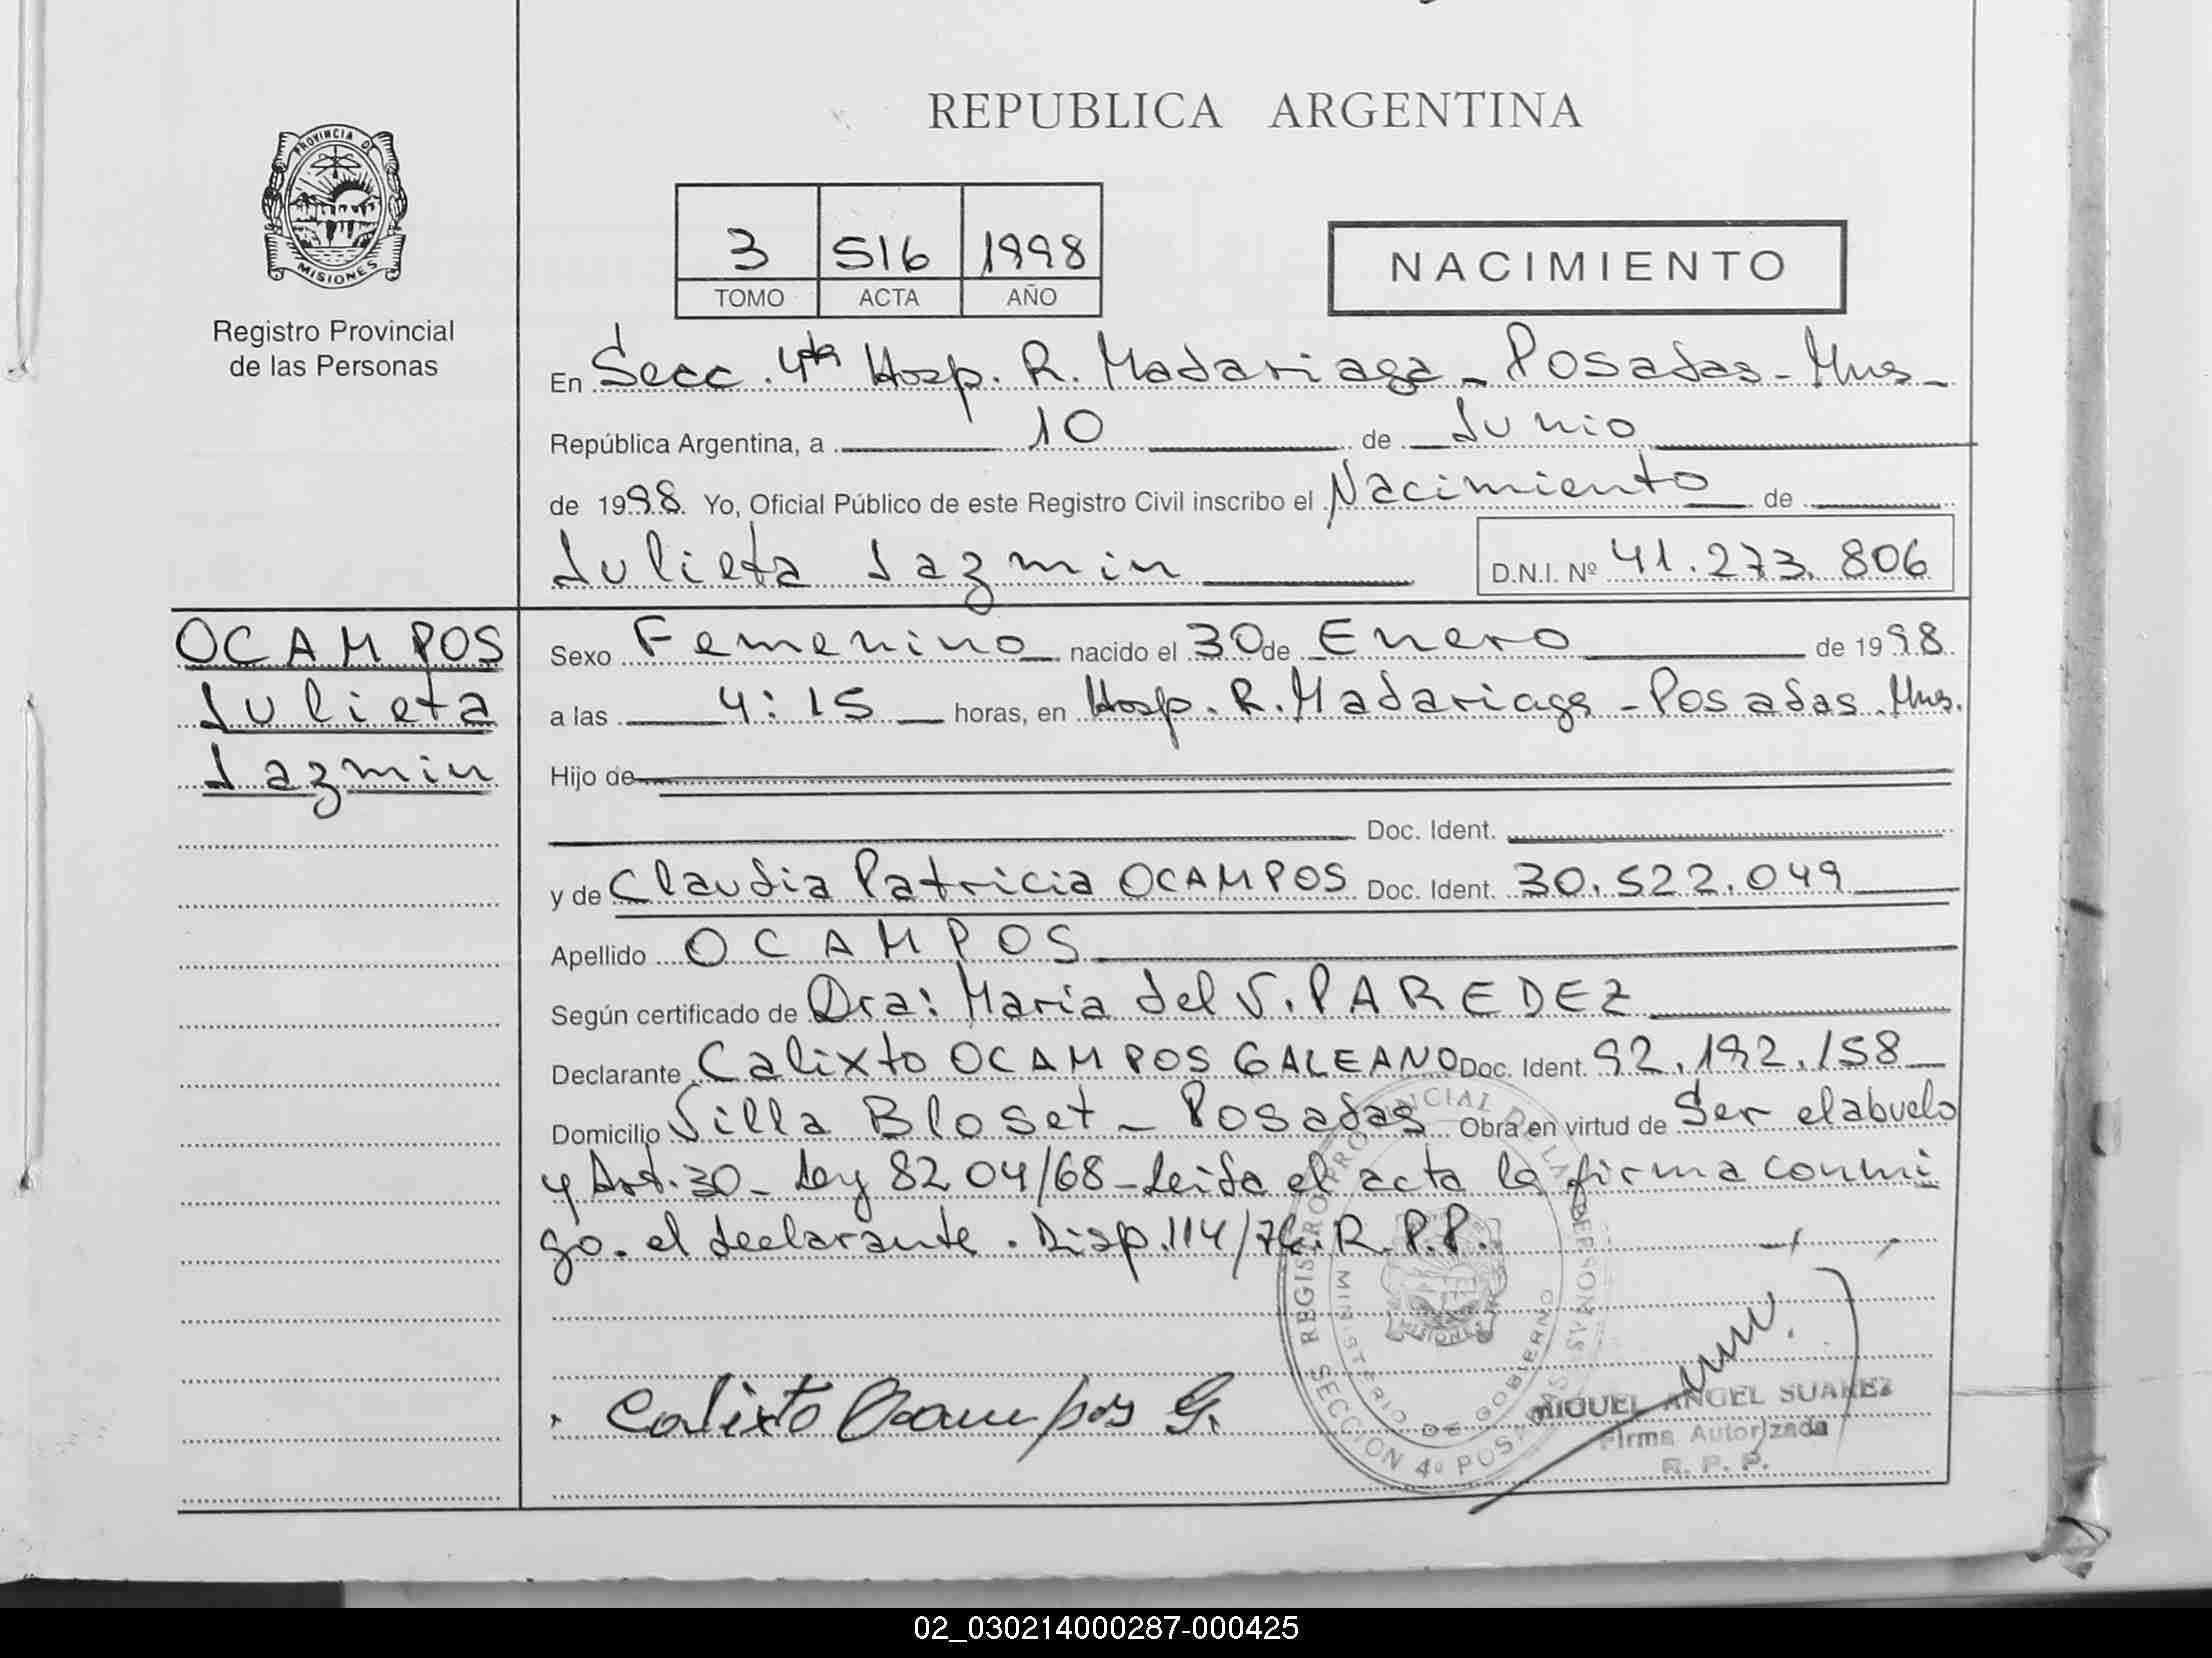 REPUBLICA ARGENTINA
PROVINCIA DE
MISIONES
Registro Provincial
de las Personas
3 516 1998
TOMO ACTA AÑO
NACIMIENTO
En Secc. 4ta Hosp. R. Madariaga - Posadas - Mns -
República Argentina, a 10 de Junio
de 1998 Yo, Oficial Público de este Registro Civil inscribo el Nacimiento de
Julieta Jazmin D.N.I. Nº 41.273.806
OCAMPOS
Julieta
Jazmin
Sexo Femenino nacido el 30 de Enero de 1998
a las 4:15 horas, en Hosp. R. Madariaga - Posadas. Mns.
Hijo de
Doc. Ident.
y de Claudia Patricia OCAMPOS Doc. Ident. 30.522.049
Apellido OCAMPOS
Según certificado de Dra: Maria del V. PAREDEZ
Declarante Calixto OCAMPOS GALEANO Doc. Ident. 92.192.158
Domicilio Villa Bloset - Posadas Obra en virtud de Ser el abuelo
y Art. 30 - Ley 8204/68 - Leida el acta la firma conmi
go. el declarante. Disp. 114/74. R.P.P.
REGISTRO PROVINCIAL DE LAS PERSONAS
MINISTERIO DE GOBIERNO
MISIONES
SECCION 4º POSADAS
Calixto Ocampos G.
MIGUEL ANGEL SUAREZ
Firma Autorizada
R. P. P.
02_030214000287-000425